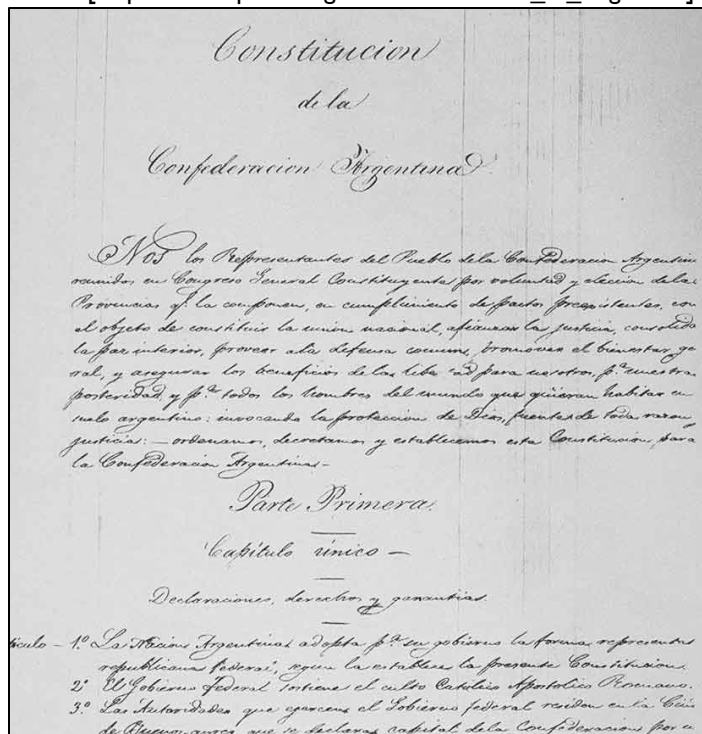 Constitucion
de la
Confederacion Argentina
Nos los Representantes del Pueblo de la Confederacion Argentin
reunidos en Congreso General Constituyente por voluntad y eleccion de las
Provincias q.e la componen, en cumplimiento de pactos preexistentes, con
el objeto de constituir la union nacional, afianzar la justicia, consolida
la paz interior, proveer a la defensa comun, promover el bienestar ge
ral, y asegurar los beneficios de la libe ad para nosotros, p.a nuestra
posteridad, y p.a todos los hombres del mundo que quieran habitar en
suelo argentino: invocando la proteccion de Dios, fuente de toda razon
justicia: — ordenamos, decretamos y establecemos esta Constitucion para
la Confederacion Argentina.—
Parte Primera.
Capítulo único —
Declaraciones, derechos y garantias.
ículo – 1.º La Nacion Argentina adopta p.a su gobierno la forma representat
republicana federal, segun la establece la presente Constitucion.
2.º El Gobierno federal sostiene el culto Católico Apostolico Romano.
3.º Las Autoridades que ejercen el Gobierno federal residen en la Ciu
de Buenos-ayres que se declara capital de la Confederacion por u